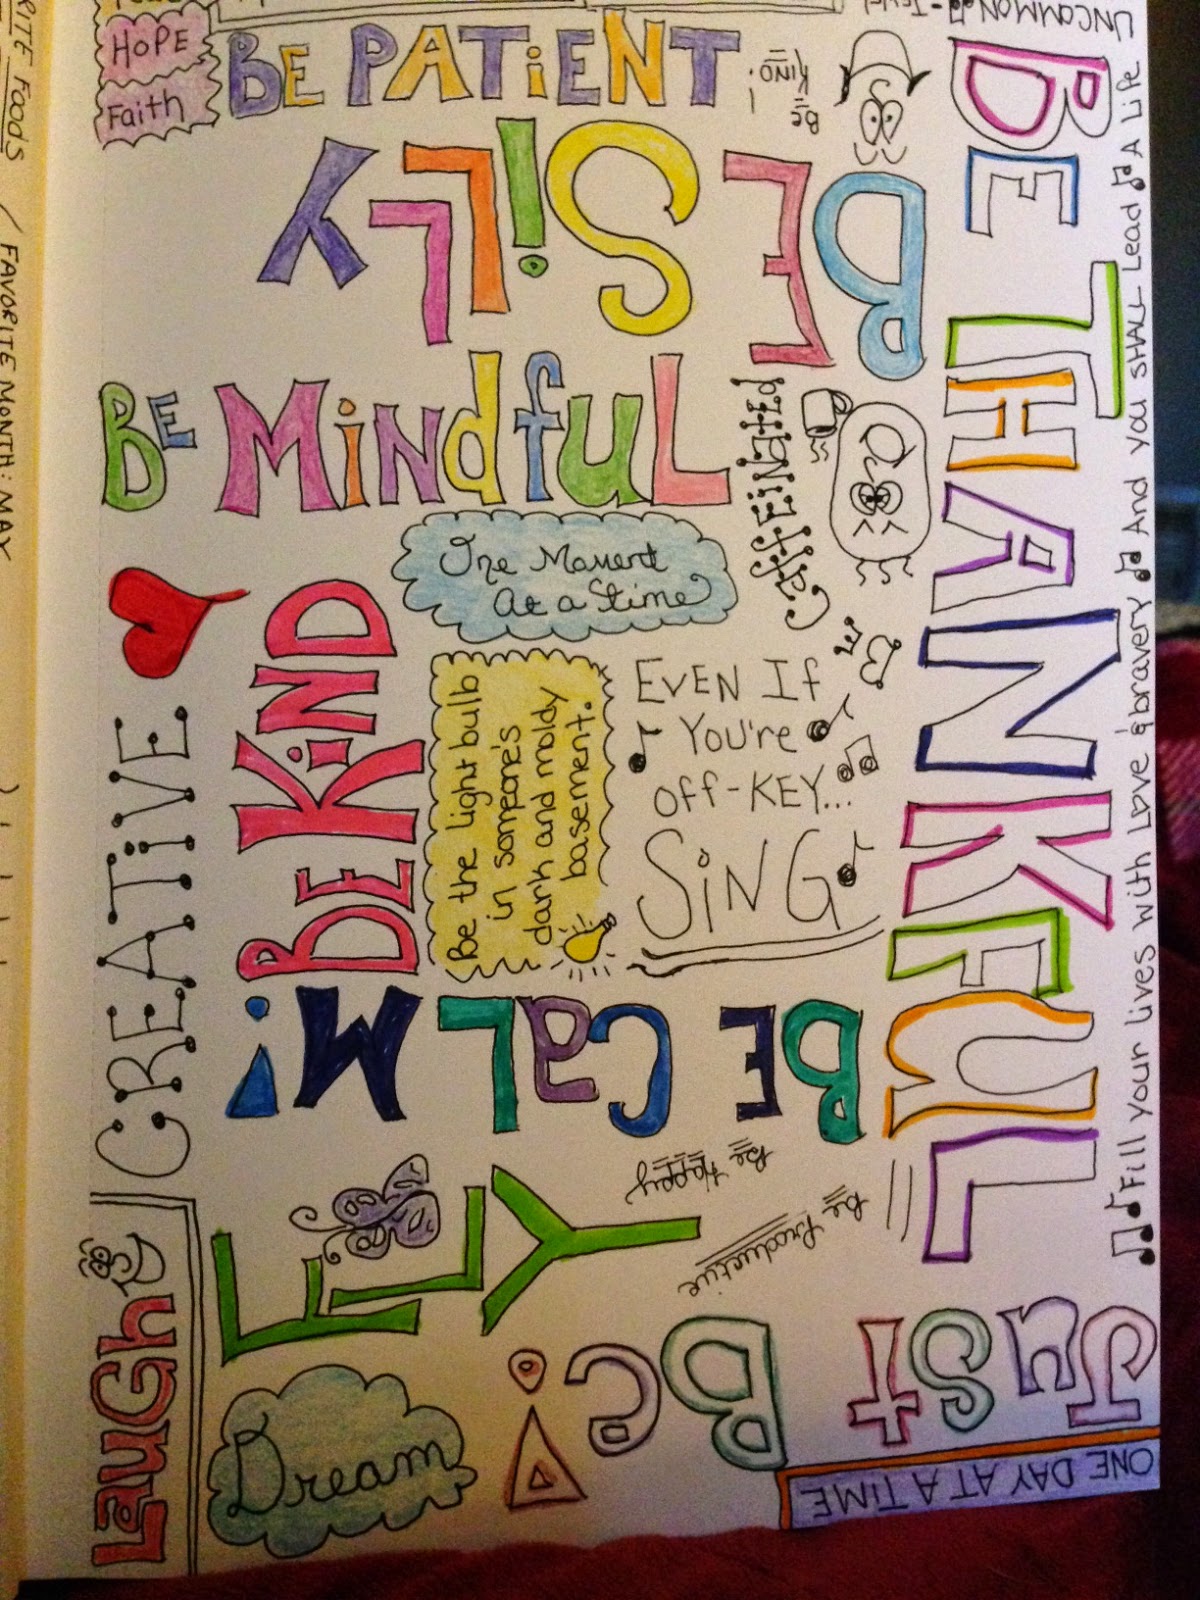 HOPE
Faith
BE PATIENT
BE
KIND!
UNCOMMON
BE THANKFUL
BE
SiLLY
BE MiNDfUL
CAffEiNEATED
One Moment
At a time
CREATiVE
BE KiND
Be the light bulb
in someone's
dark and moldy
basement.
EVEN If
You're
Off-KEY...
SiNG
BE CaLM!
Be Happy
Be Productive
FLY
Laugh
Dream
JuST
Be!
ONE DAY AT A TiME
Fill your lives with Love & bravery And you SHALL Lead A Life
UNCOMMON
RITE FOODS
FAVORITE MONTH: MAY